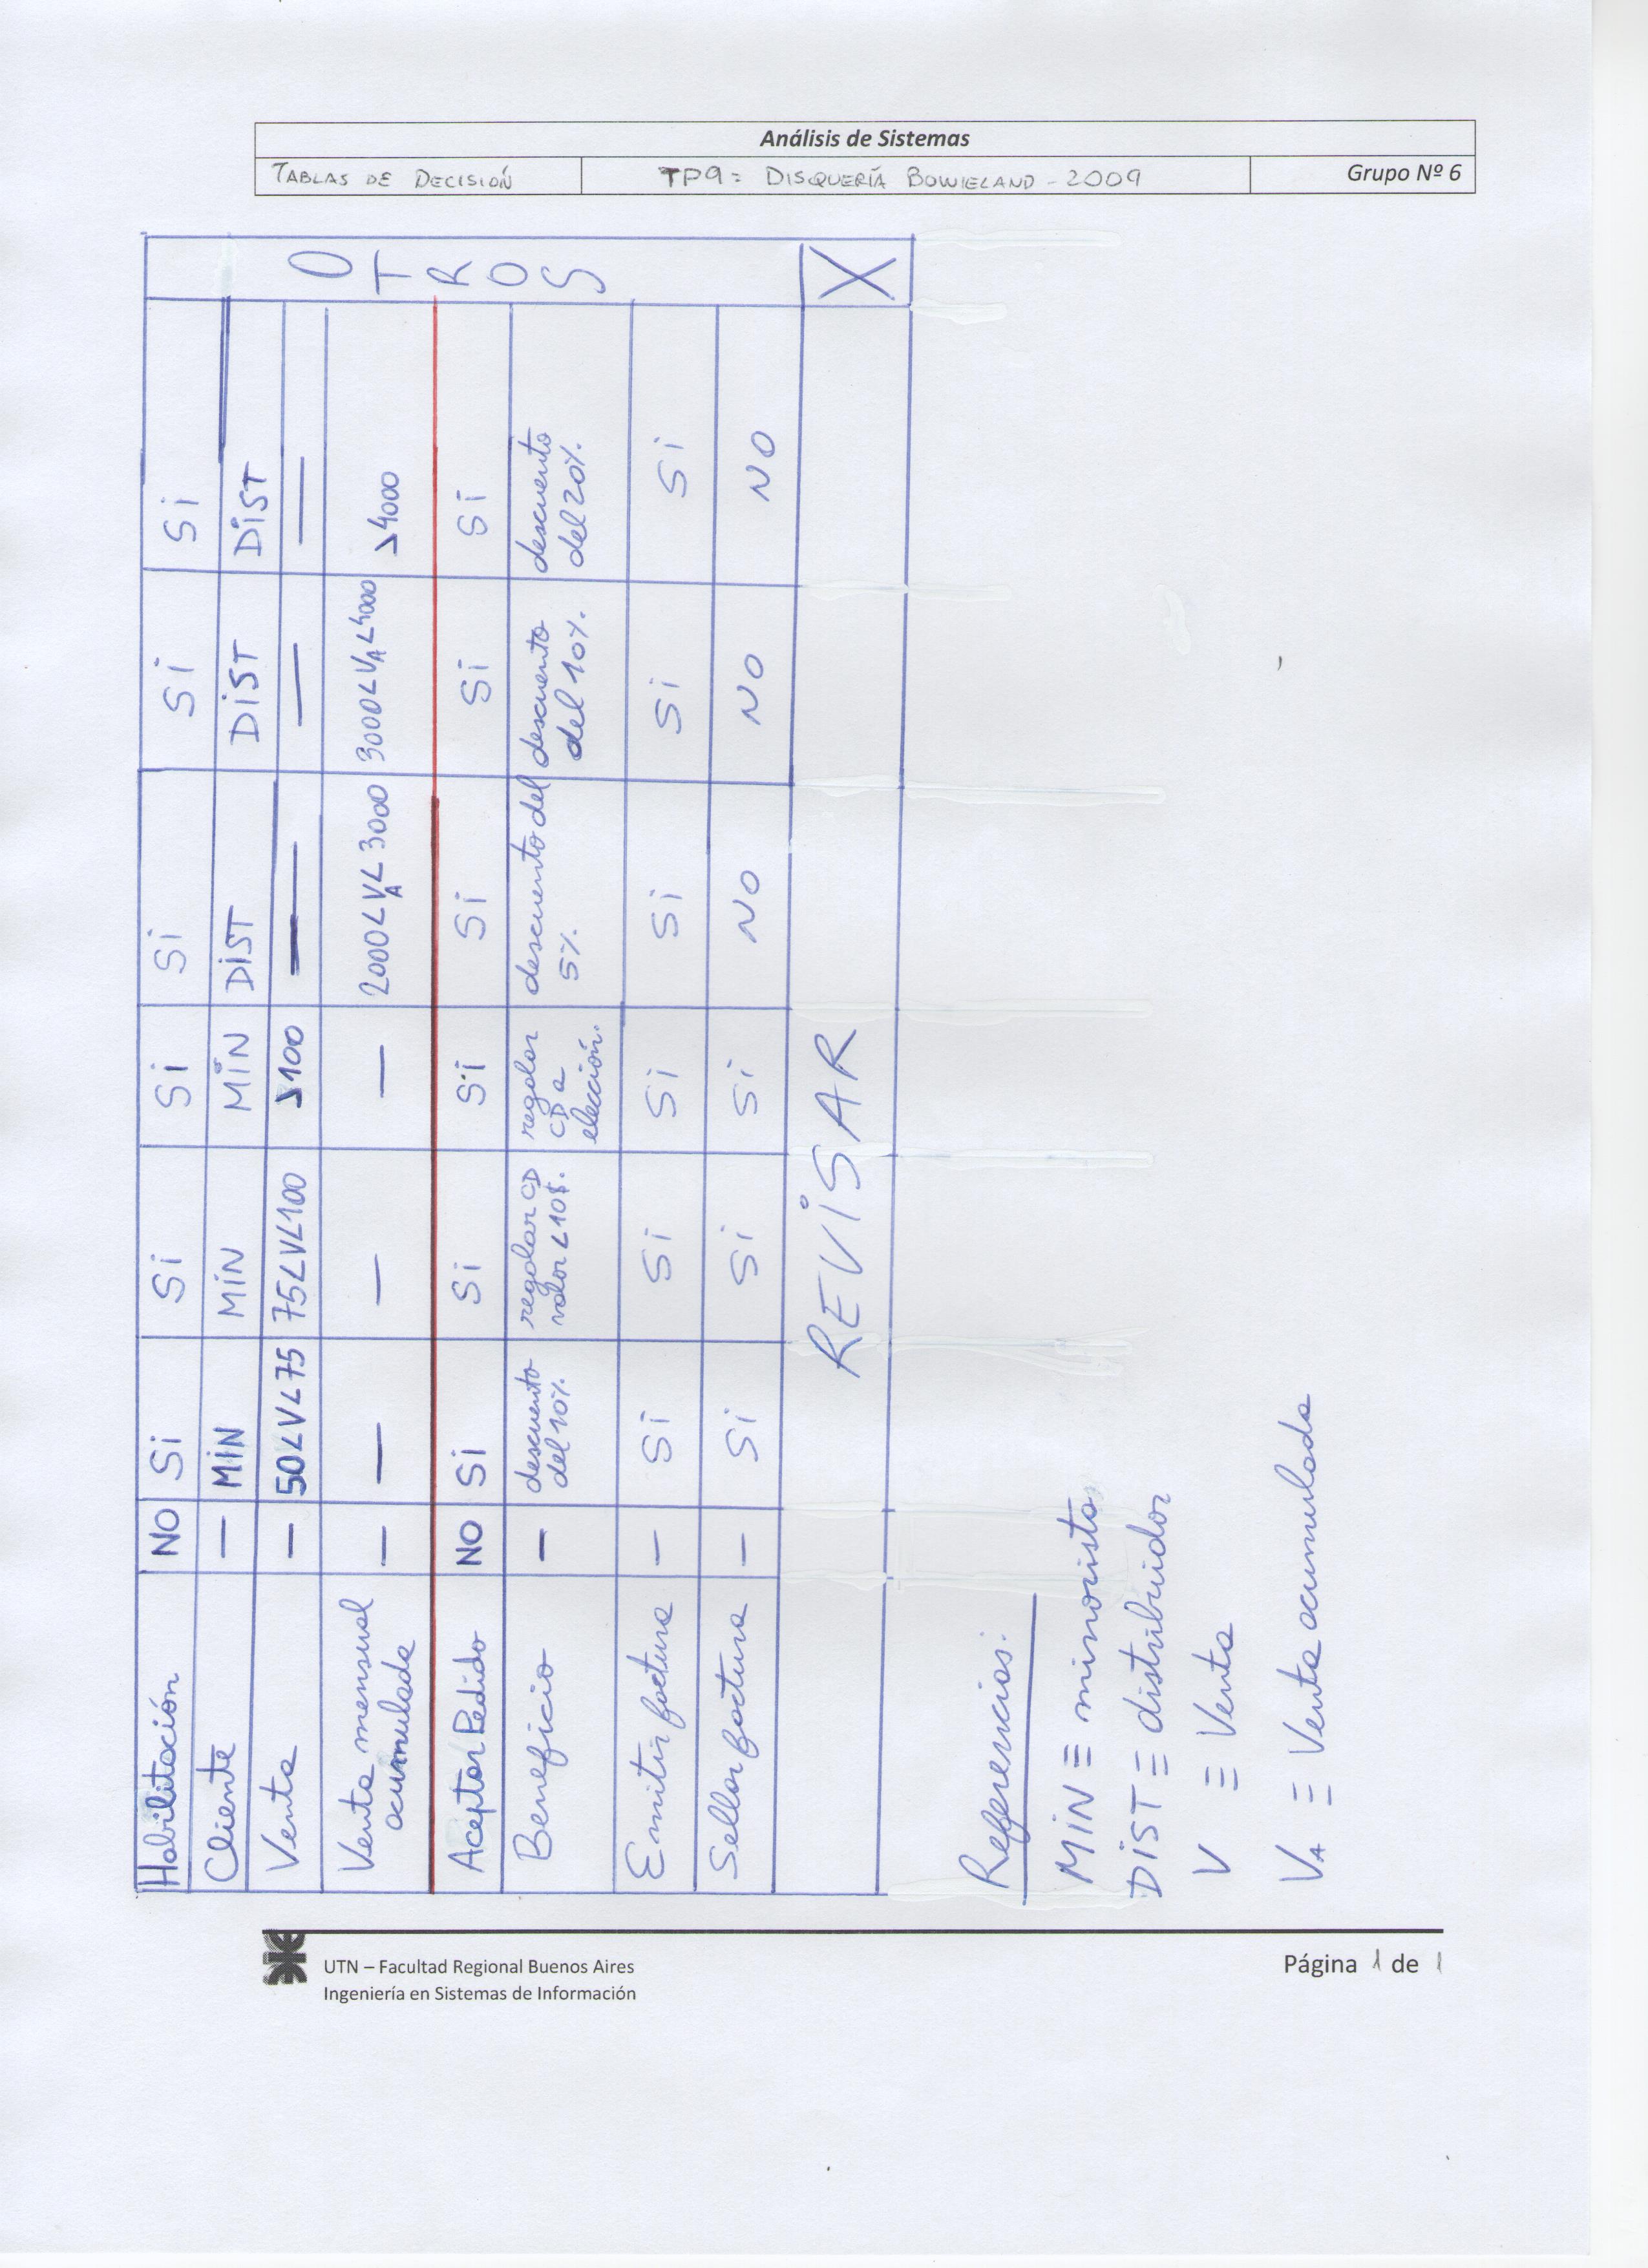 Análisis de Sistemas
TABLAS DE DECISIÓN TP9: DISQUERÍA BOWIELAND - 2009 Grupo Nº 6
Habilitación NO Si Si Si Si Si Si
Cliente — MiN MiN MiN DiST DiST DiST
Venta — 50<V<75 75<V<100 >100 — — —
Venta mensual acumulada — — — — 2000<VA<3000 3000<VA<4000 >4000
Aceptar Pedido NO Si Si Si Si Si Si
Beneficio — descuento del 10%. regalar CD valor <10$. regalar CD a elección. descuento del 5%. descuento del 10%. descuento del 20%.
Emitir factura — Si Si Si Si Si Si
Sellar factura — Si Si Si NO NO NO
REViSAR X
OTROS
Referencias:
MiN ≡ minorista
DiST ≡ distribuidor
V ≡ Venta
VA ≡ Venta acumulada
UTN – Facultad Regional Buenos Aires
Ingeniería en Sistemas de Información
Página 1 de 1